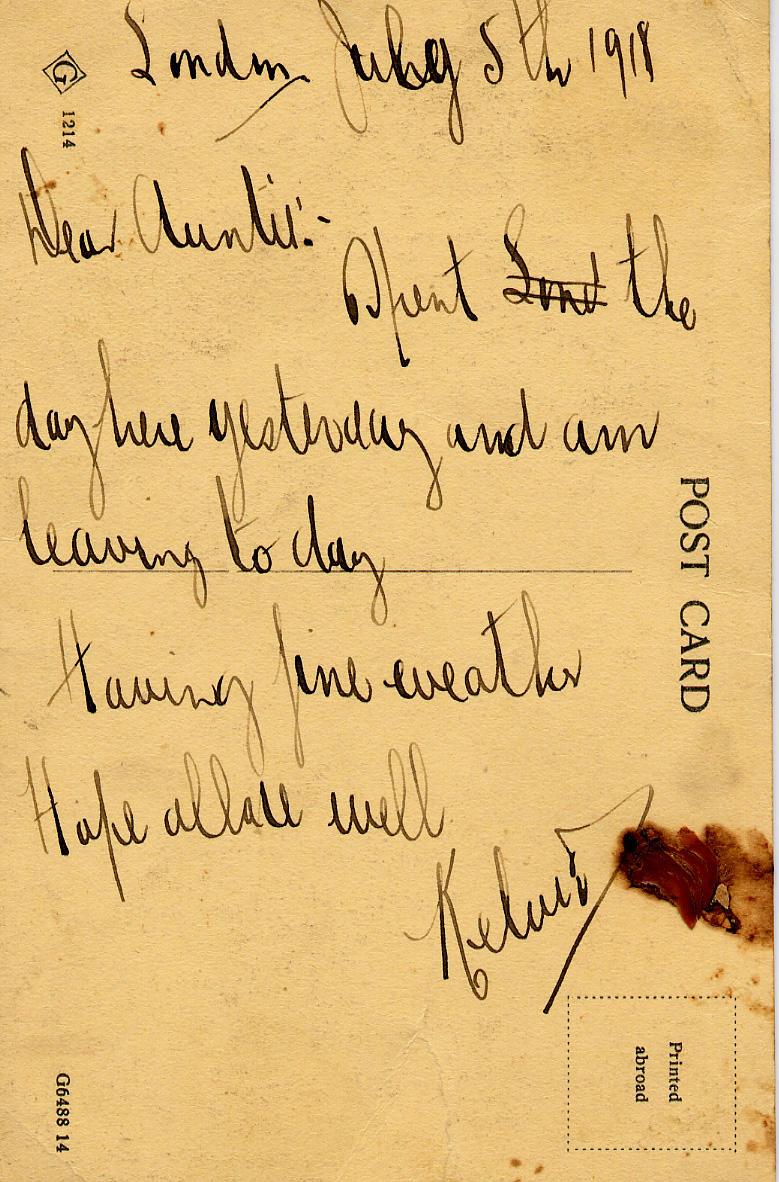 London July 5th 1918
G
1214
Dear Auntie:-
Spent Lond the
day here yesterday and am
leaving to day
POST CARD
Having fine weather
Hope all are well
Kelvin
Printed
abroad
G6488 14